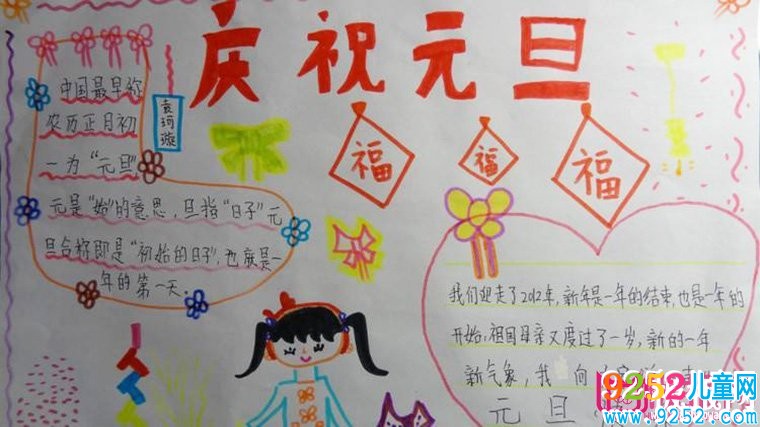 庆祝元旦
中国最早称
农历正月初
一为“元旦”
元是“始”的意思，旦指“日子”元
旦合称即是“初始的日子”，也就是一
年的第一天。
袁珂璇
福
福
福
我们迎走了2012年，新年是一年的结束，也是一年的
开始，祖国母亲又度过了一岁，新的一年
新气象，我 向
元旦
9252儿童网
www.9252.com